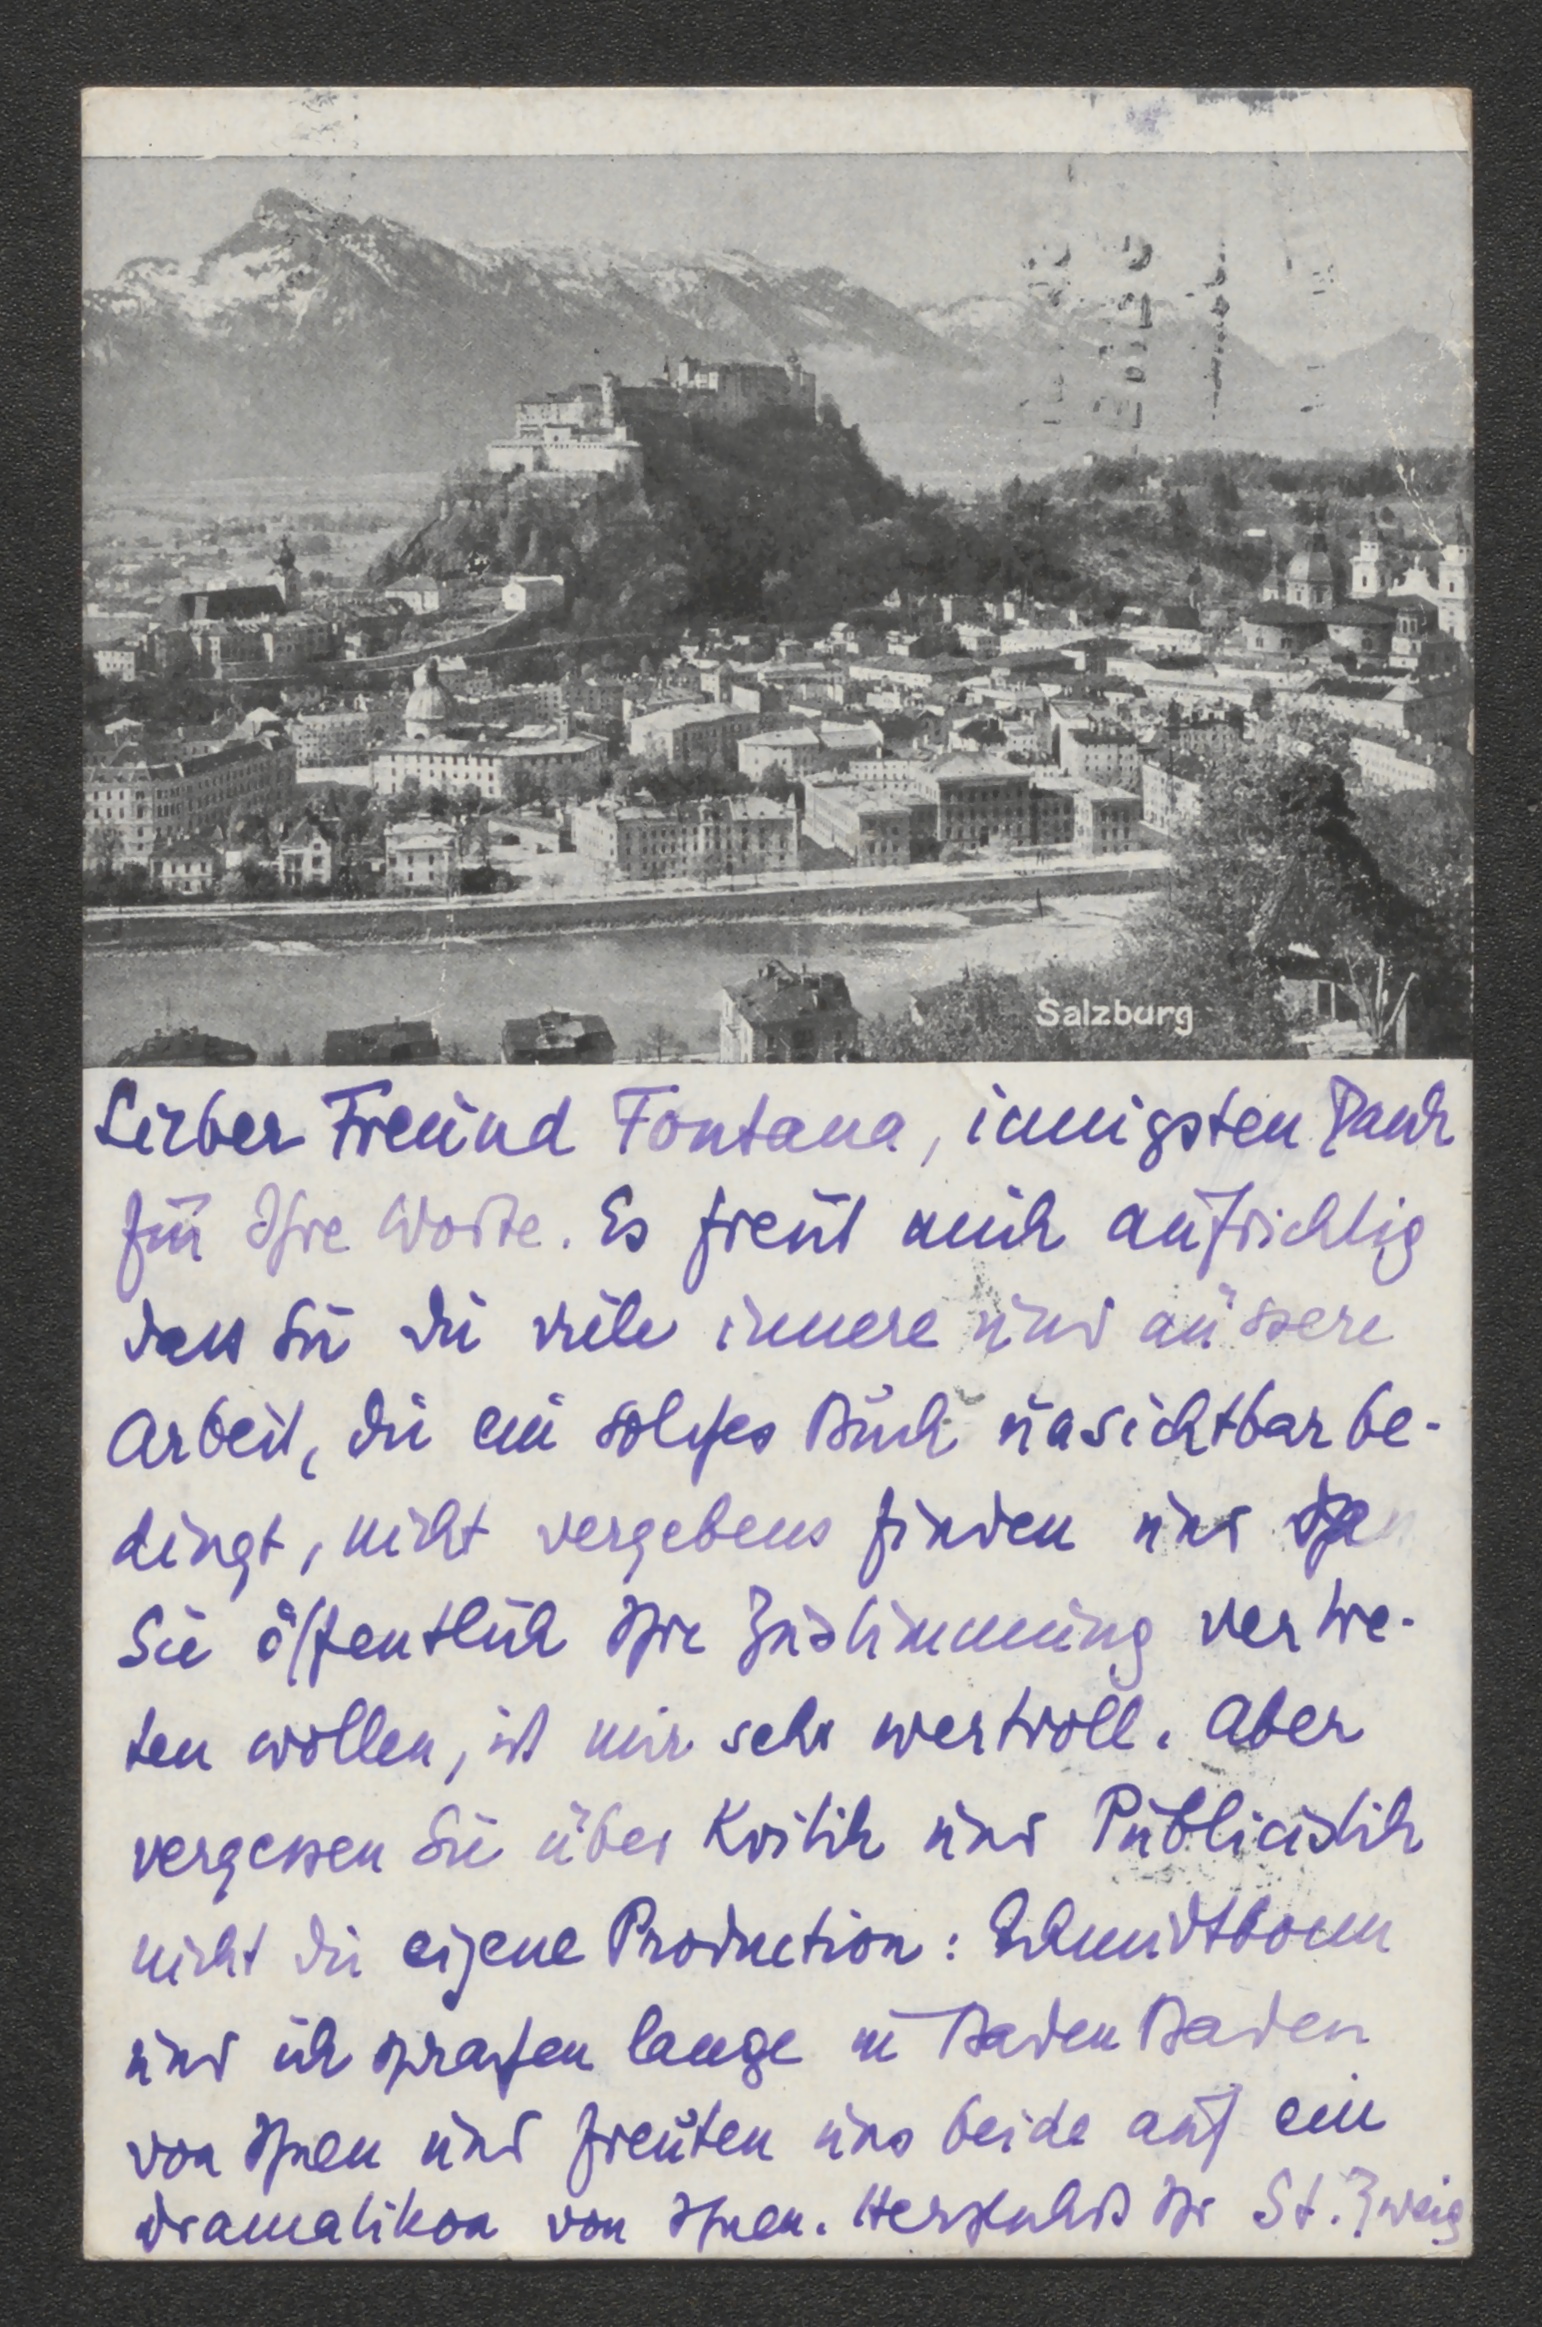 Salzburg
Lieber Freund Fontana, innigsten Dank
für Ihre Worte. Es freut mich aufrichtig
dass Sie die viele innere und äussere
Arbeit, die ein solches Buch unsichtbar be-
dingt, nicht vergebens finden und
Sie öffentlich Ihre Zustimmung vertre-
ten wollen, ist mir sehr wertvoll. Aber
vergessen Sie über Kritik und Publicistik
nicht die eigene Production: Schmidtbonn
und ich sprachen lange in Baden Baden
von Ihnen und freuten uns beide auf ein
dramatikon von Ihnen. Herzlichst Ihr St. Zweig